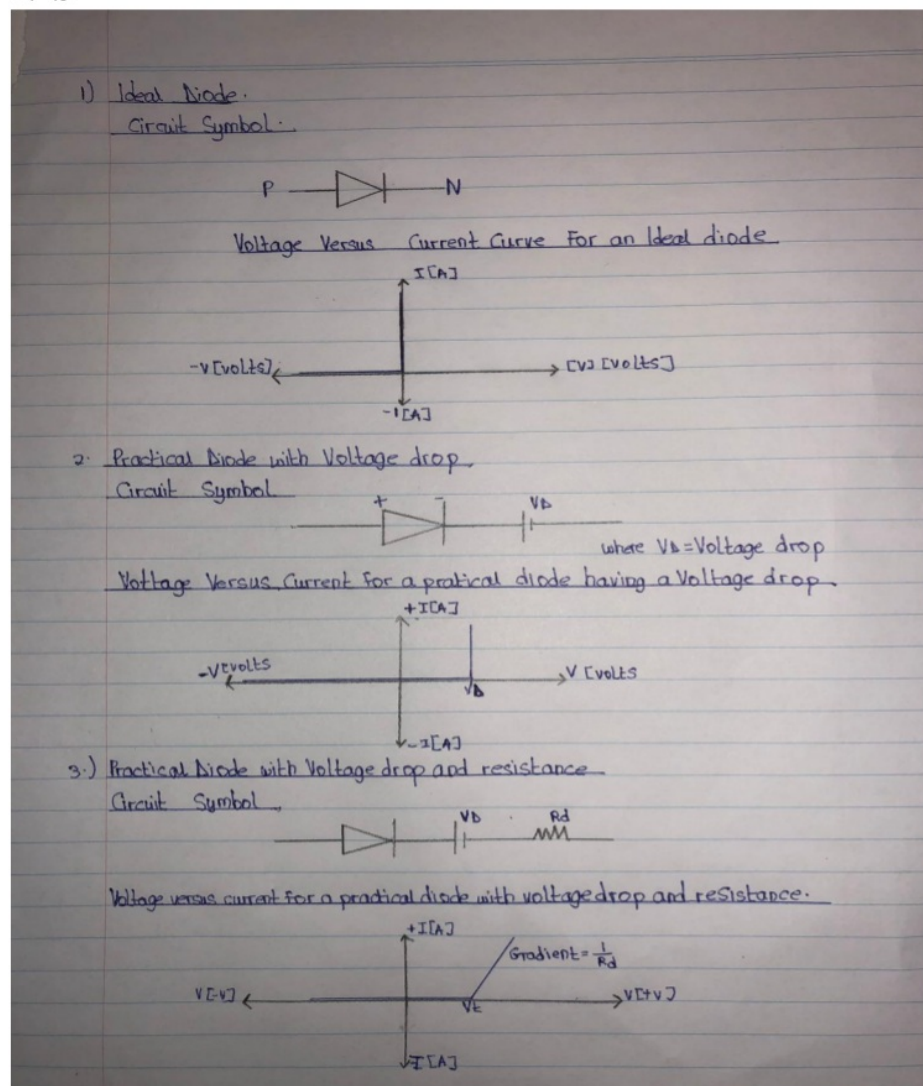 1) Ideal Diode.
Circuit Symbol.
P N
Voltage Versus Current Curve For an Ideal diode
I[A]
-V[volts] [V] [volts]
-I[A]
2. Practical Diode with Voltage drop.
Circuit Symbol
+ - VD
where VD = Voltage drop
Voltage Versus Current For a pratical diode having a Voltage drop.
+I[A]
-V[volts V [volts
VD
-I[A]
3.) Practical Diode with Voltage drop and resistance
Circuit Symbol.
VD Rd
Voltage versus current for a practical diode with voltage drop and resistance.
+I[A]
Gradient = 1/Rd
V[-V] Vt V[+V]
-I[A]